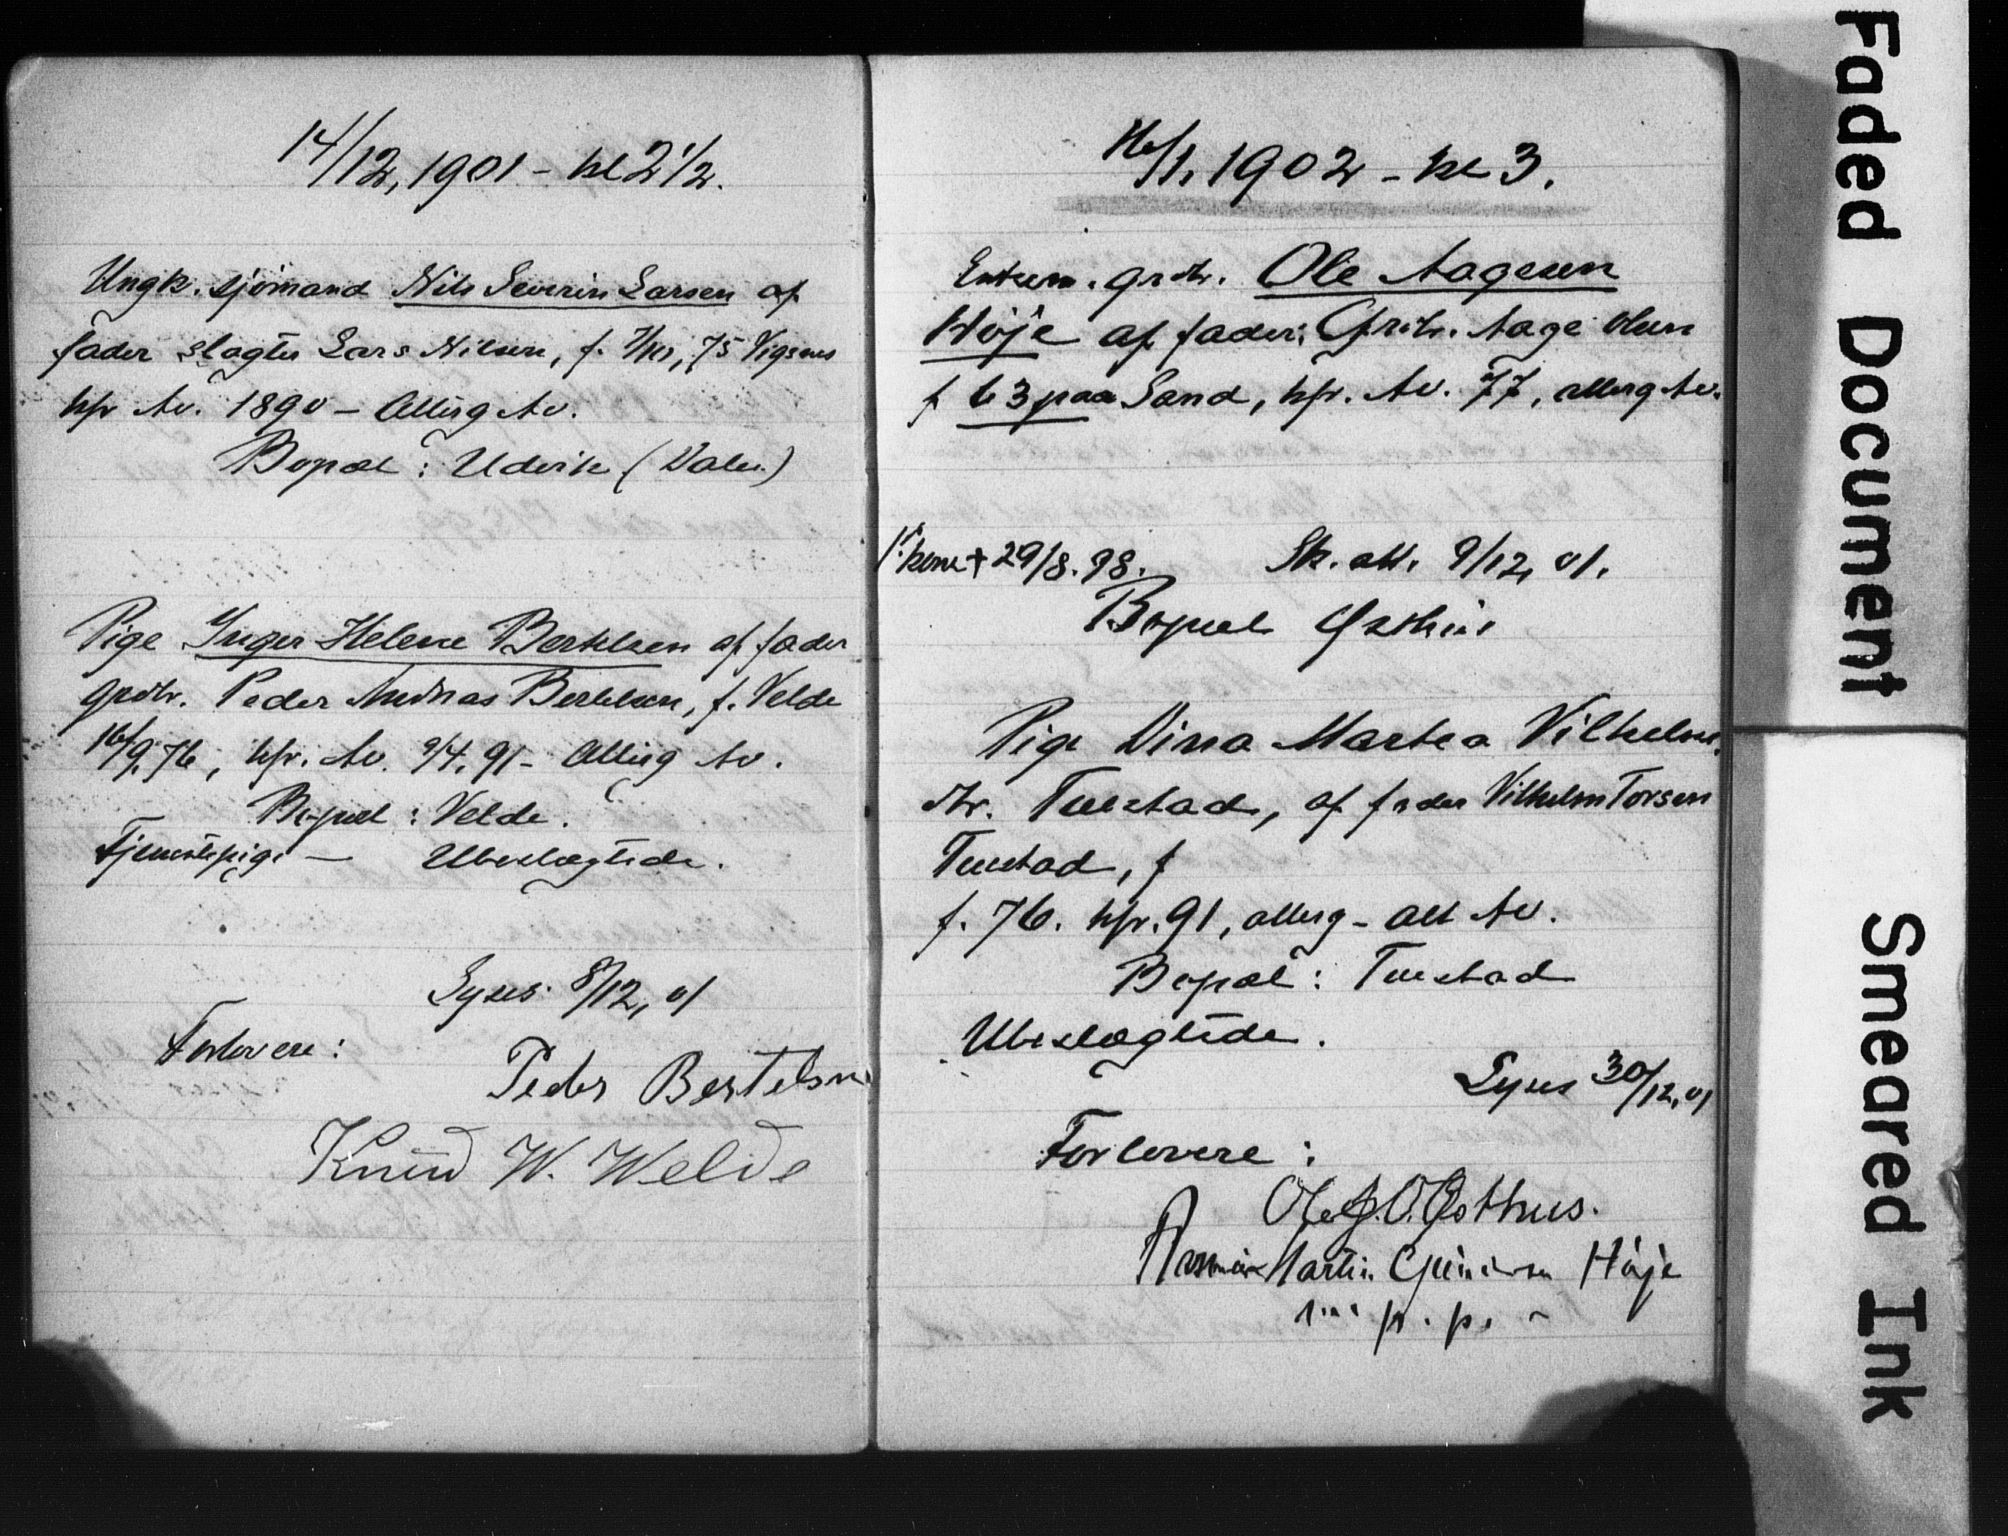 14/12, 1901 - kl 2 1/2.
Ungk. sjömand Nils Severin Larsen af
fader slagter Lars Nilsen, f. 75 Vigsnes
kfr Av. 1890 - Allerg Av.
Bopæl : Udvik (Valer)
Pige Inger Helene Bertelsen af fader
grdbr. Peder Andreas Bertelsen, f. Velde
16/9, 76, kfr. Av. 9/4, 91 - Allerg Av.
Bopæl : Velde.
Tjenestepige — Ubeslægtede.
Lyses 8/12, 01
Forlovere :
Peder Bertelsen
Knud W. Welde
16/1, 1902 - kl 3.
Enkem. grdbr. Ole Aagesen
Höje af fader: Grdbr. Aage Olsen
f 63 paa Sand, kfr. Av. 77, allerg Av.
1. kone + 29/8. 98. Sk. att. 9/12, 01.
Bopæl Østhus
Pige Dina Martea Vilhelms.
dtr. Tuestad, af fader Vilhelm Torsen
Tuestad, f
f. 76. kfr. 91, allerg - alt Av.
Bopæl : Tuestad
Ubeslægtede.
Lyses 30/12, 01
Forlovere :
Ole J. O. Østhus.
Martin Höje
p. p.
Faded Document
Smeared Ink